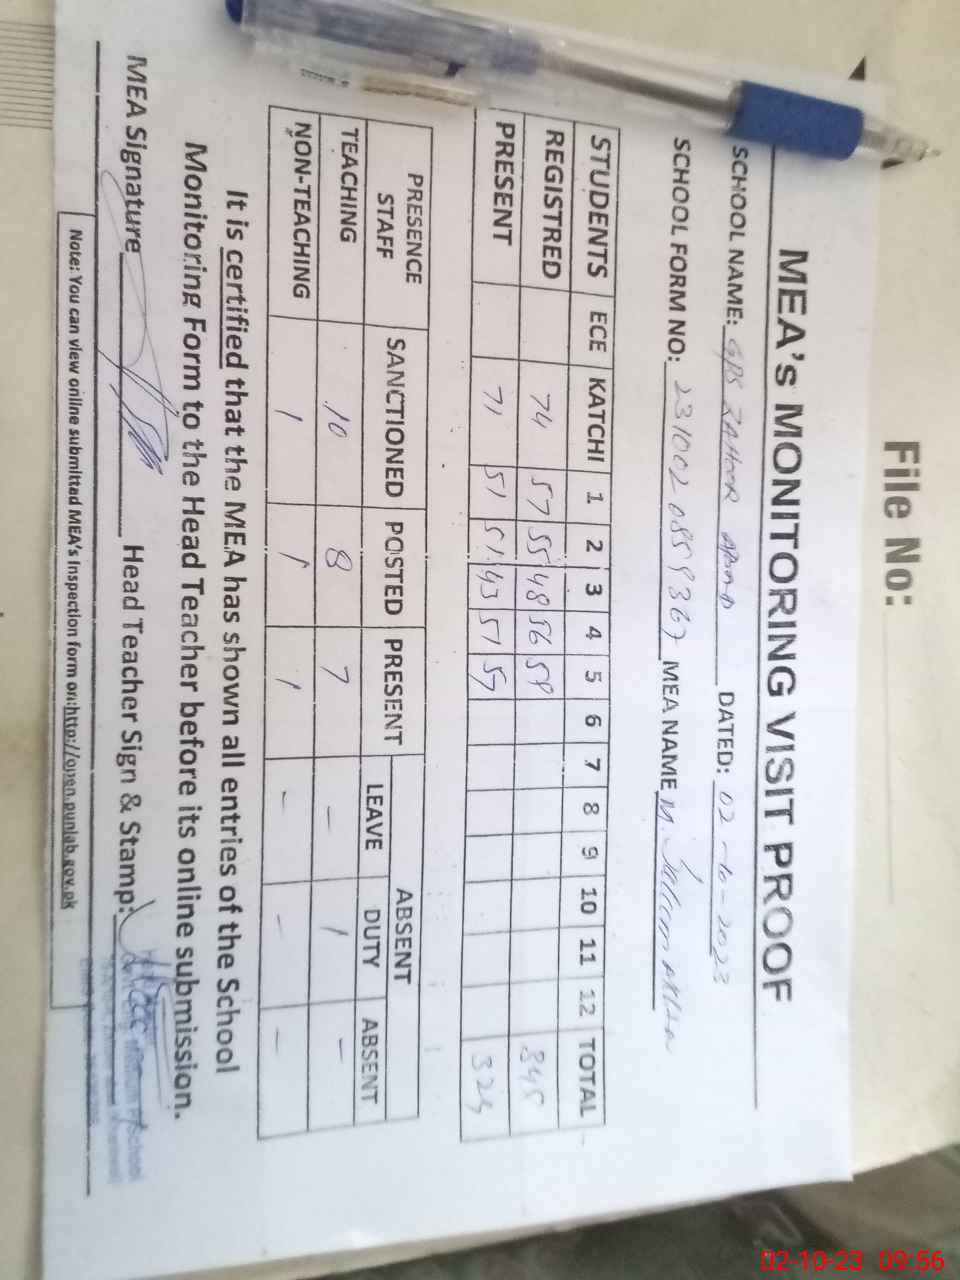 File No:
MEA's MONITORING VISIT PROOF
SCHOOL NAME: GPS ZAHOOR ABAD DATED: 02-10-2023
SCHOOL FORM NO: MEA NAME M.
STUDENTS ECE KATCHI 1 2 3 4 5 6 7 8 9 10 11 12 TOTAL
REGISTRED 74 57 55 48 56 345
PRESENT 71 51 51 43 51 57
PRESENCE STAFF SANCTIONED POSTED PRESENT ABSENT
LEAVE DUTY ABSENT
TEACHING 10 8 7 - 1 -
NON-TEACHING 1 1 1 - - -
It is certified that the MEA has shown all entries of the School
Monitoring Form to the Head Teacher before its online submission.
MEA Signature Head Teacher Sign & Stamp:
Note: You can view online submitted MEA's Inspection form on:http://open.punjab.gov.pk
02-10-23 09:56